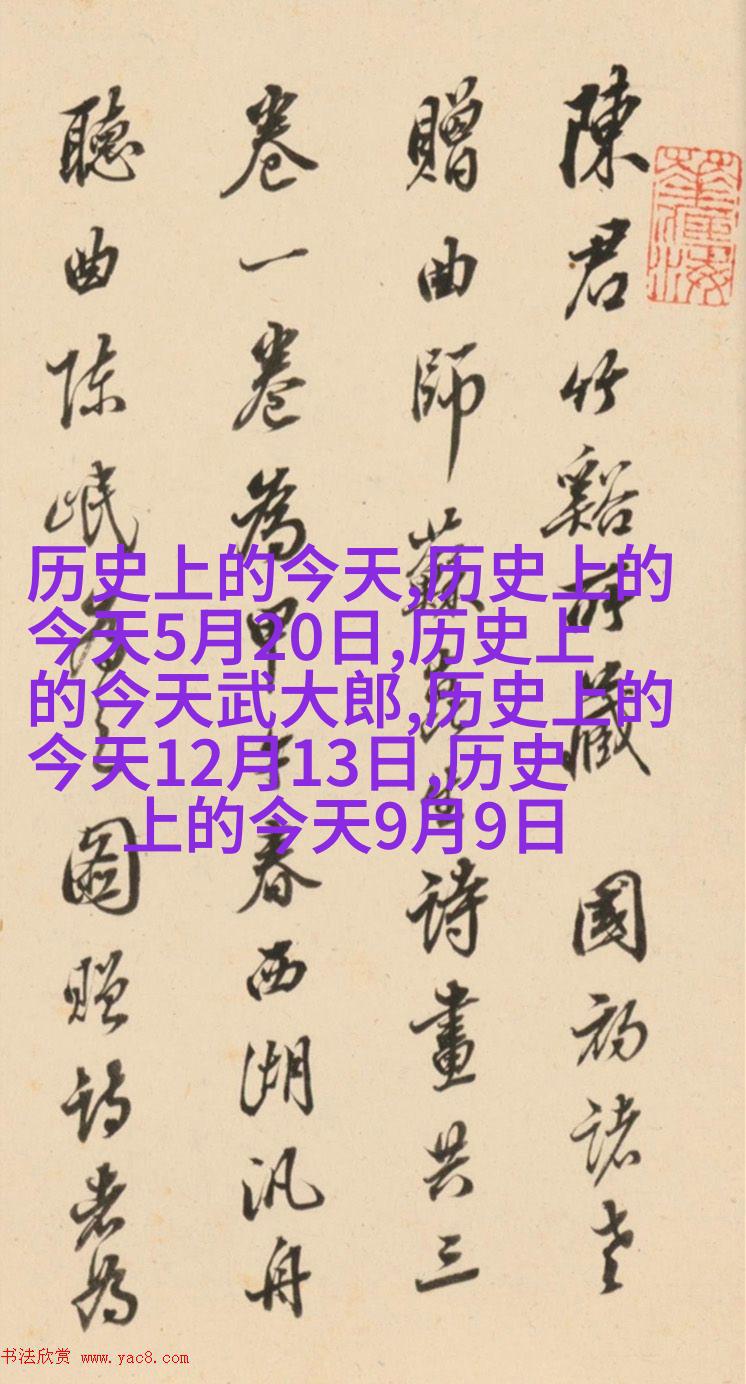 陳君竹谿所藏 國初諸老
贈曲師蘇崑生詩畫共三
卷一卷為甲午春西湖汎舟
聽曲陈岷為之圖贈詩者為
历史上的今天,历史上的
今天5月20日,历史上
的今天武大郎,历史上的
今天12月13日,历史
上的今天9月9日
书法欣赏 www.yac8.com